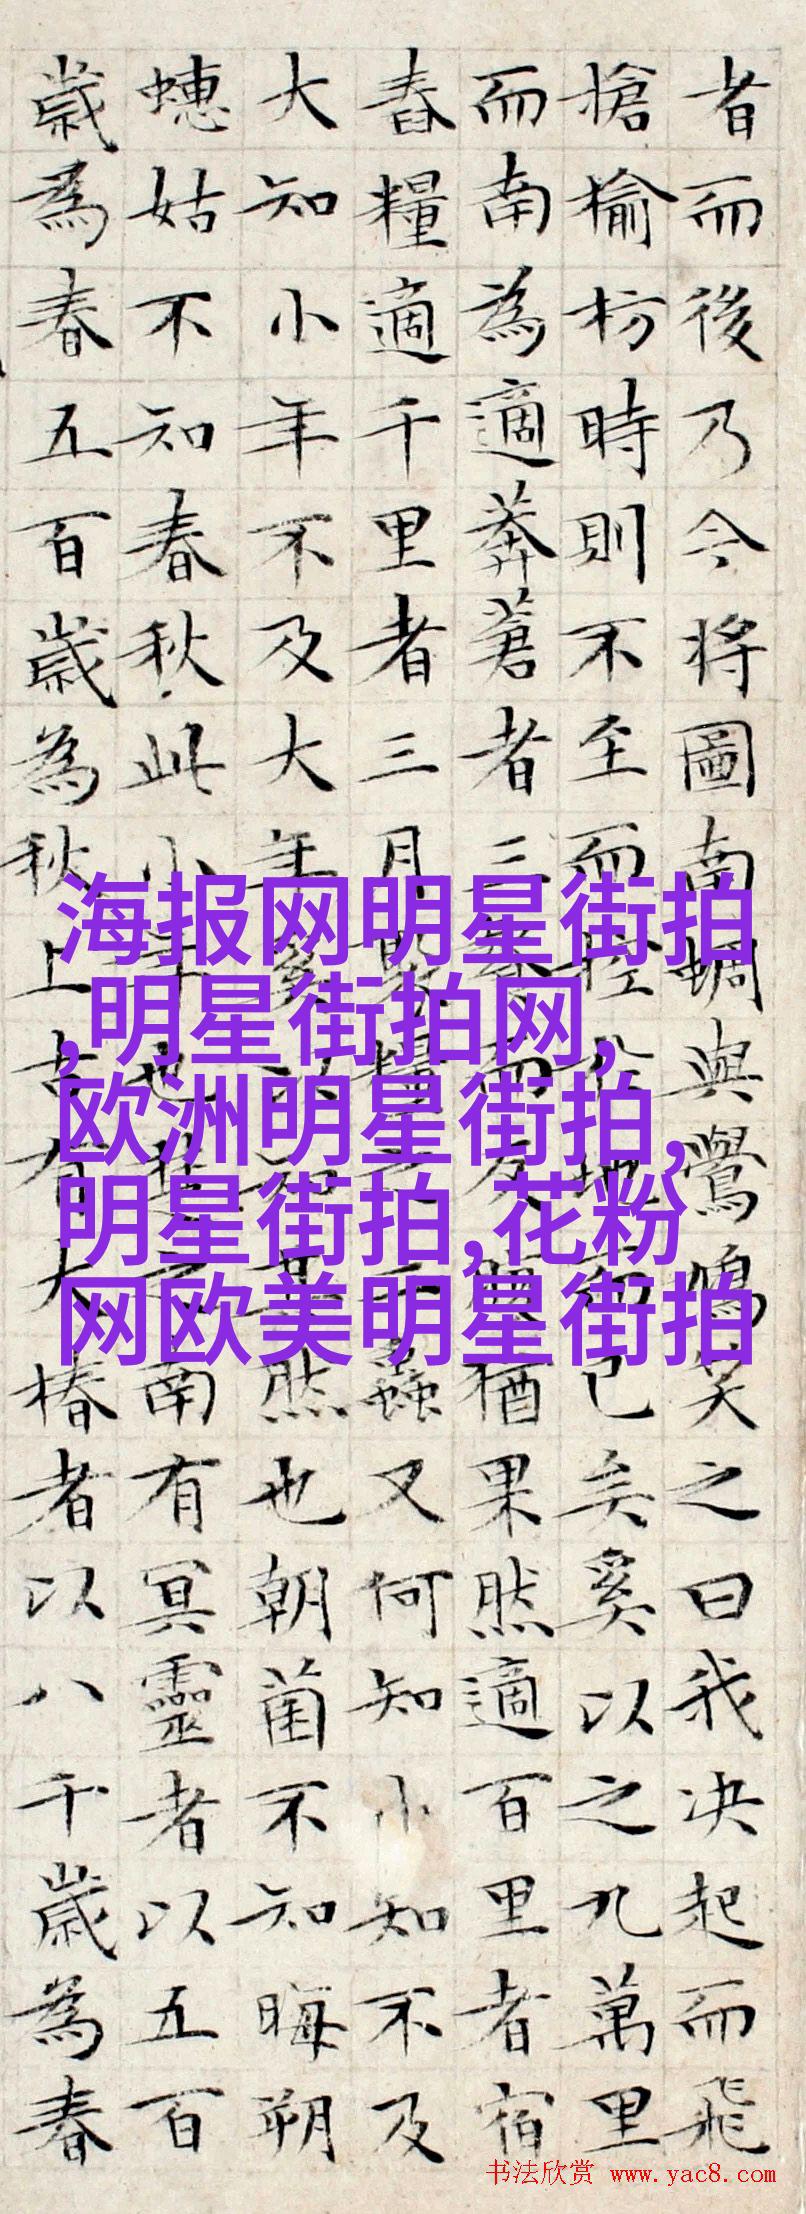 者而後乃今将圖南蜩與鷽鳩笑之曰我决起而飛
搶榆枋時則不至而控於地而已矣奚以之九萬里
而南為適莽蒼者三飡而反腹猶果然適百里者宿
舂糧適千里者三月聚糧之二蟲又何知小知不及
大知小年不及大年奚以知其然也朝菌不知晦朔
蟪姑不知春秋此小年也楚之南有冥靈者以五百
歲為春五百歲為秋上古有大椿者以八千歲為春
海报网明星街拍
,明星街拍网,
欧洲明星街拍,
明星街拍,花粉
网欧美明星街拍
书法欣赏 www.yac8.com